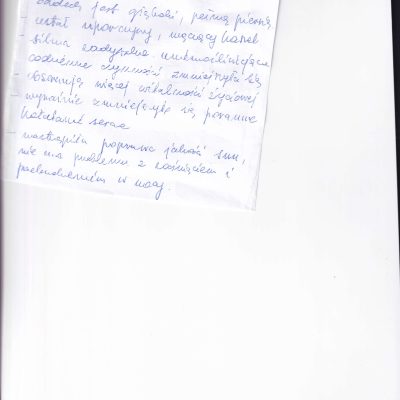 oddech jest głęboki, pełną piersią
- ustał uporczywy, męczący kaszel
- silna zadyszka uniemożliwiająca
codzienne czynności zmniejszyła się
- obserwuję więcej witalności życiowej
- wyraźnie zmniejszyło się poranne
kołatanie serca
- nastąpiła poprawa jakości snu,
nie ma problemu z zaśnięciem i
pochodzeniem w nocy.